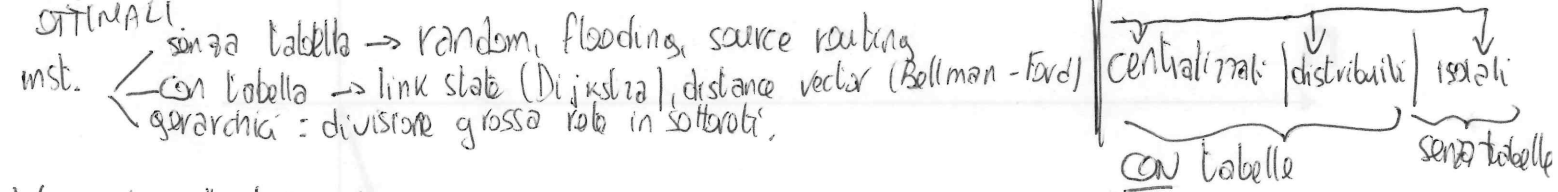 OTTIMALI
senza tabella → random, flooding, source routing
inst.
con tabella → link state (Dijkstra), distance vector (Bellman-Ford)
gerarchici = divisione grossa rete in sottoreti.
centralizzati | distribuiti | isolati
CON tabelle
senza tabelle